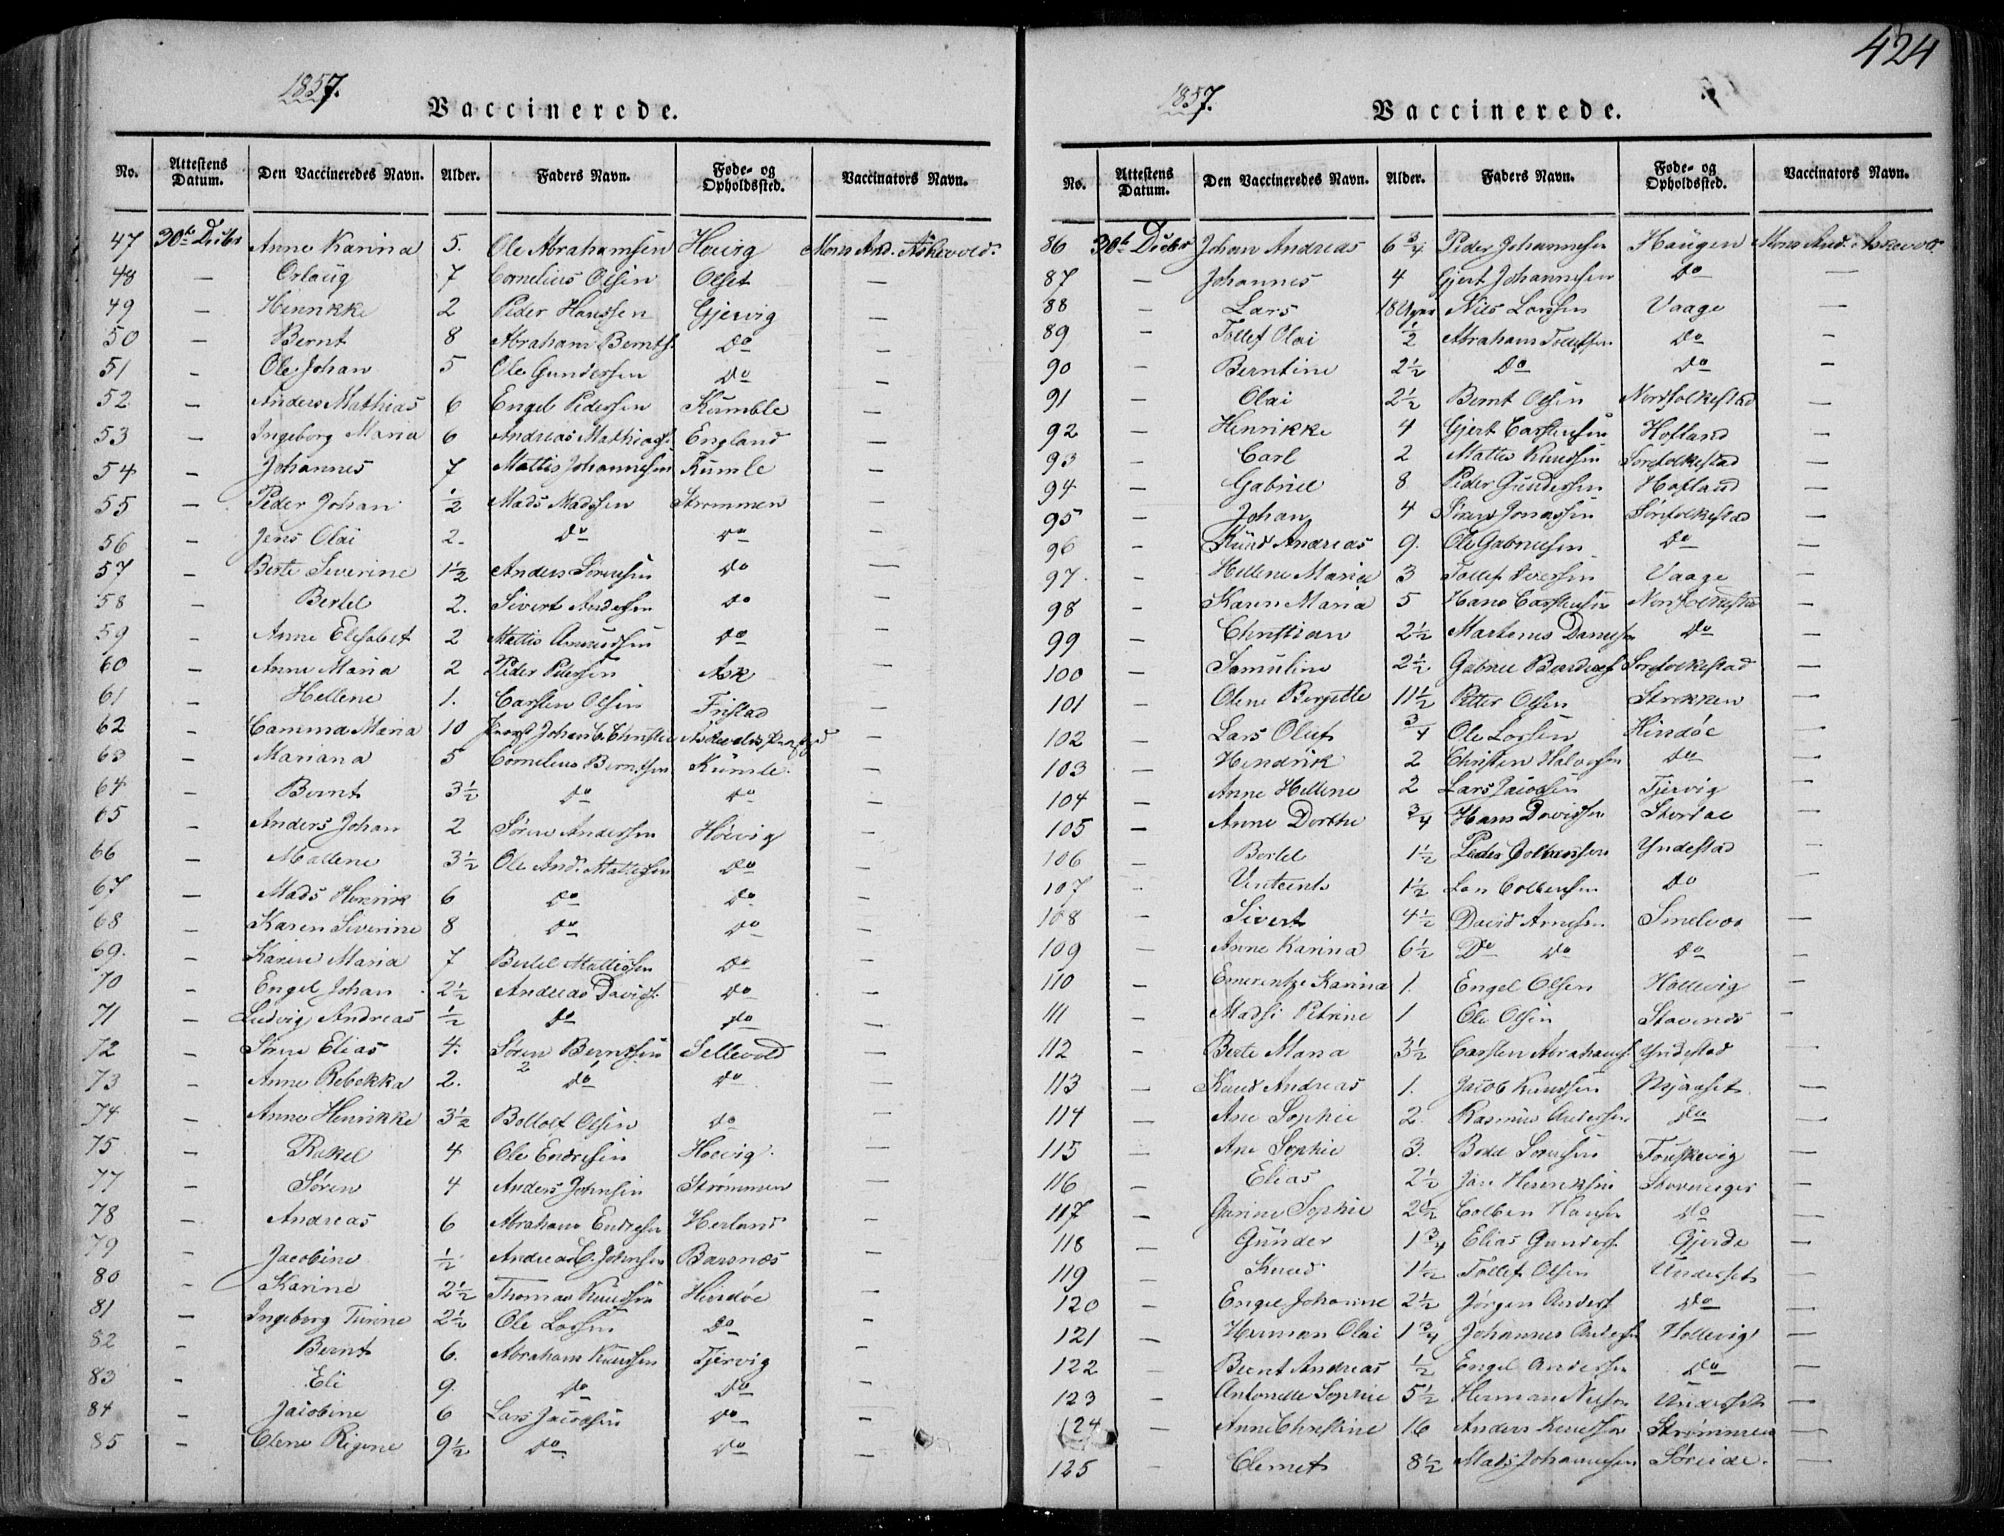 424
1857.
Vaccinerede.
No. Attestens Datum. Den Vaccineredes Navn. Alder. Faders Navn. Føde- og Opholdssted. Vaccinators Navn.
47 30te Decbr Anne Karina 5. Ole Abrahamsen Høivig Mons And. Askevold.
48 — Orlaug 7 Cornelius Olsen Olset —
49 — Henrikke 2 Peder Hanssen Gjervig —
50 — Bernt 8 Abraham Bernts. Do —
51 — Ole Johan 5 Ole Gundersen Do —
52 — Anders Mathias 6 Engel Pedersen Kumble —
53 — Ingeborg Maria 6 Andreas Mathias England —
54 — Johannes 7 Mattis Johannesen Kumle —
55 — Peder Johan ½ Mads Madssen Strømmen —
56 — Jens Olai 2. Do Do —
57 — Berte Severine 1½ Anders Sørensen Do —
58 — Bertel 2. Sivert Andersen Do —
59 — Anne Elisabet 2 Mattis Amundsen Do —
60 — Anne Maria 2 Peder Pedersen Ask —
61 — Hellene 1. Carsten Olsen Fristad —
62 — Camma Maria 10 Johan C. Christie —
63 — Mariana 5 Cornelius Berntsen Kumle —
64 — Bernt 3½ Do Do —
65 Anders Johan 2 Søren Anderssen Høivig —
66 — Mallene 3½ Ole And. Mattissen Do —
67 — Mads Henrik 6 Do Do —
68 — Karen Siverine 8 Do Do —
69. — Karen Maria 7 Bertel Mattissen Do —
70 — Engel Johan 2½ Andreas Davids. Do —
71 — Ludvig Andreas ½ Do Do —
72 — Søren Elias 4. Søren Berntsen Sellevold —
73 — Anne Rebekka 2. Do Do —
74 — Anne Henrikke 3½ Bottolf Olsen Do —
75 — Rakel 4 Ole Endresen Høivig —
77 — Søren 4 Anders Johnsen Strømmen —
78 — Andreas 6 Abraham Endresen Herland —
79 — Jacobine ½ Andreas C. Johnsen Barsnes —
80 — Karine 2½ Thomas Knudsen Hindøe —
81 — Ingeborg Turine 2½ Ole Larsen Do —
82 — Bernt 6. Abraham Knudsen Tjervig —
83 — Eli 9. Do Do —
84 — Jacobine 6 Lars Jacobsen Do —
85 — Elene Rigene 9½ Do Do —
1857.
Vaccinerede.
No. Attestens Datum. Den Vaccineredes Navn. Alder. Faders Navn. Føde- og Opholdssted. Vaccinators Navn.
86 30te Decbr Johan Andreas 6¾ Peder Johannesen Haugen Mons And. Askevold.
87 — Johannes 4 Gjert Johannesen Do —
88 — Lars 18 Uger Nils Larsen Vaage —
89 — Tollef Olai ½ Abraham Tollefsen Do —
90 — Berntine 2½ Do Do —
91 — Olai 2½ Bernt Olsen Nordfolkestad —
92 — Henrikke 4 Gjert Carstensen Hofland —
93 — Carl 2 Mattis Knudsen Sørfolkestad —
94 — Gabriel 8 Peder Gundersen Hofland —
95 — Johan 4 Søren Jonassen Sørfolkestad —
96 — Knud Andreas 9. Ole Gabrielsen Do —
97. — Hellene Maria 3 Tollef Iversen Vaage —
98 — Karen Maria 5 Hans Carstensen Nordfolkestad —
99 — Christian 2½ Martinus Danielsen Do —
100 — Samuline 2½ Gabriel Sørfolkestad —
101 — Olene Bergitte 11½ Petter Olsen Strekken —
102 — Lars Olut ¾ Ole Larsen Hindøe —
103 — Hendrik 2 Christen Halvorsen Do —
104 — Anne Hellene 2 Lars Jacobsen Tjervig —
105 — Anne Dorthe ¾ Hans Davidsen —
106 — Bertel 1½ Peder Colbensen Yndestad —
107 — Vintcents 1½ Lars Colbensen Do —
108 — Sivert 4½ David Arnesen —
109 — Anne Karina 6½ Do Do Do —
110 — Emerentze Karina 1. Engel Olsen Hollevig —
111 — Madsi Petrine 1 Ole Olsen Stavenes —
112 — Berte Maria 3½ Carsten Abrahams. Yndestad —
113 — Knud Andreas 1. Jacob Knudsen Nyaaset —
114 — Ane Sophie 2. Rasmus Andersen Do —
115 — Ane Sophie 3. Sørensen —
116 — Elias 2½ Jan Henriksen —
117 — Garine Sophie 2½ Colben Hansen Do —
118 — Gunder 1¾ Elias Gunders. Gjerde —
119 — Knud 1½ Tollef Olsen Underset —
120 — Engel Johanne 2½ Jørgen Anders. Do —
121 — Herman Olai 1¾ Johannes Andersen Hollevig —
122 — Bernt Andreas ½ Engel Andersen Do —
123 — Antonette Sophie 5½ Herman Nielsen Underset —
124 — Anne Christine 16 Anders Knudsen Strømmen —
125 — Clemet 8½ Mads Johannesen Søreide. —